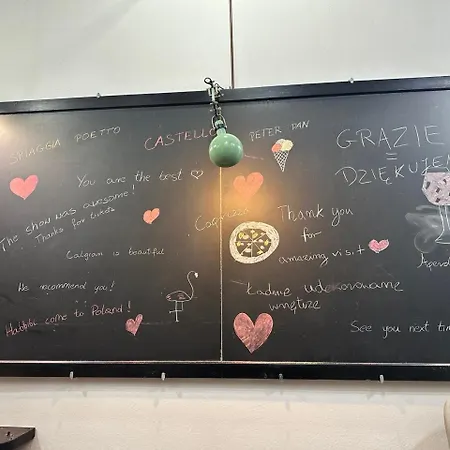 SPIAGGIA POETTO
CASTELLO
PETER PAN
GRAZIE
=
DZIĘKUJEM
You are the best
The show was awesome!
Thanks for tickets
Cagliari is beautiful
We recommend you!
Habibi come to Poland!
Thank you
for
amazing visit
Ładnie udekorowane
wnętrze
See you next tim